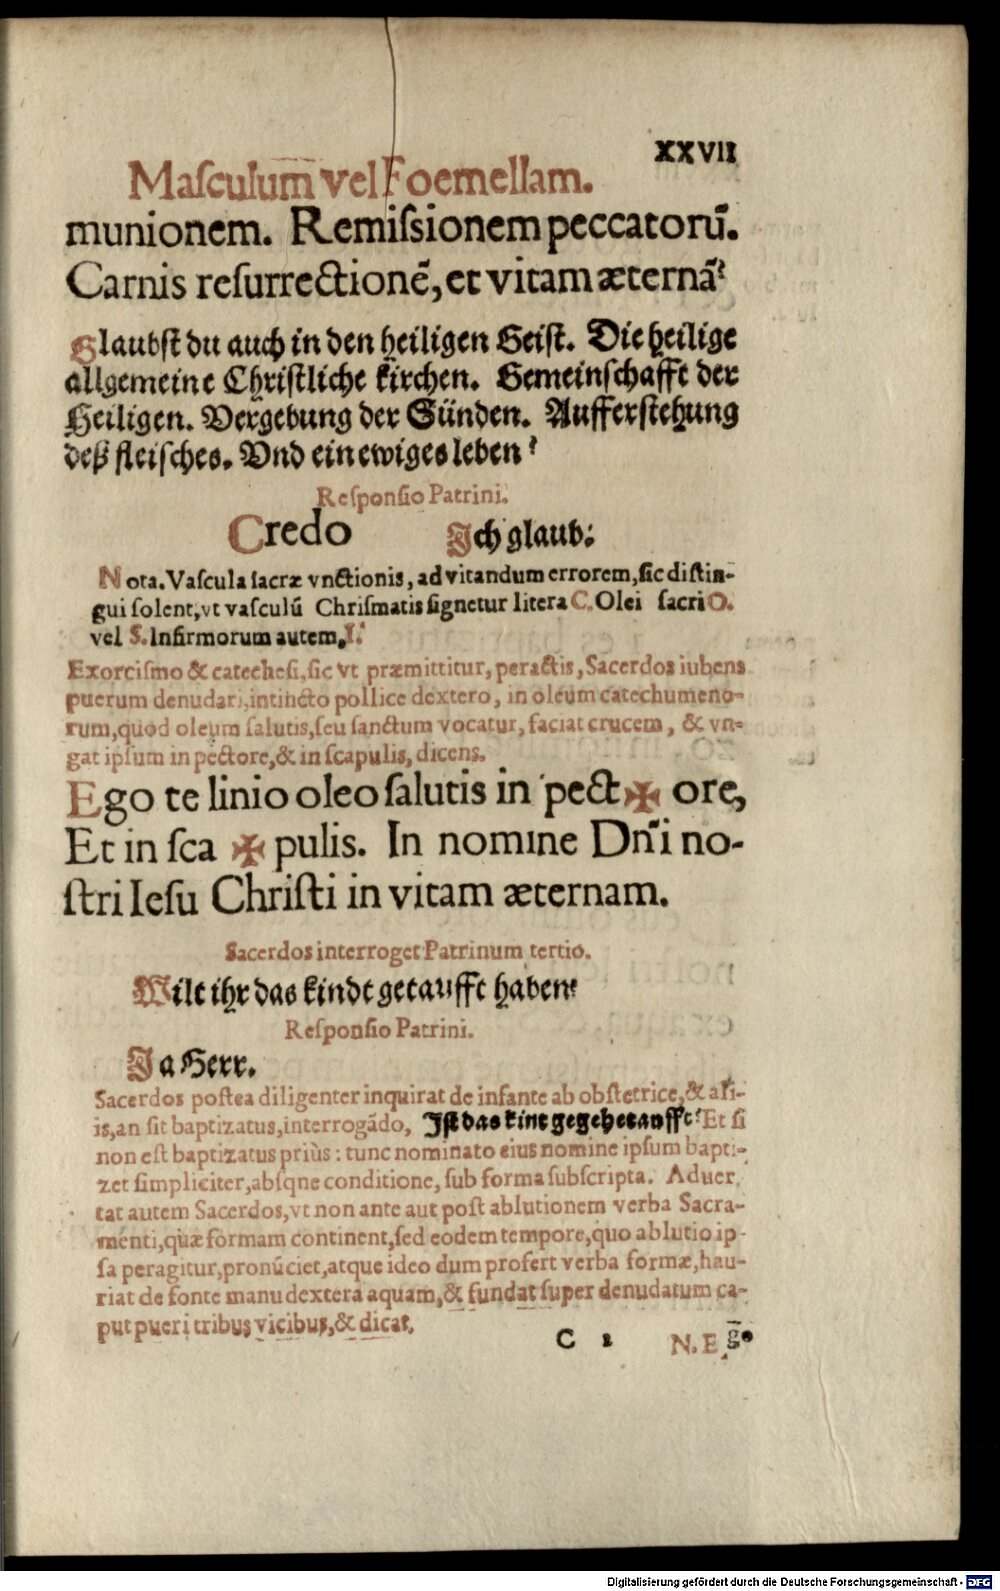 XXVII
Maſculum vel Foemellam.
munionem. Remiſsionem peccatorū.
Carnis reſurrectionē, et vitam æternã?
Glaubſt du auch in den heiligen Geiſt. Die heilige
allgemeine Chriſtliche kirchen. Gemeinſchafft der
Heiligen. Vergebung der Sünden. Aufferſtehung
deß fleiſches. Vnd ein ewiges leben?
Reſponſio Patrini.
Credo Ich glaub:
Nota. Vaſcula ſacræ vnctionis, ad vitandum errorem, ſic diſtin-
gui ſolent, vt vaſculū Chriſmatis ſignetur litera C. Olei ſacri O.
vel S. Infirmorum autem, I.
Exorciſmo & catecheſi, ſic vt præmittitur, peractis, Sacerdos iubens
puerum denudari, intincto pollice dextero, in oleum catechumeno-
rum, quod oleum ſalutis, ſeu ſanctum vocatur, faciat crucem, & vn-
gat ipſum in pectore, & in ſcapulis, dicens.
Ego te linio oleo ſalutis in pect ✠ ore,
Et in ſca ✠ pulis. In nomine Dn̄i no-
ſtri Ieſu Chriſti in vitam æternam.
Sacerdos interroget Patrinum tertio.
Wilt ihr das kindt getaufft haben?
Reſponſio Patrini.
Ja Herr.
Sacerdos poſtea diligenter inquirat de infante ab obſtetrice, & ali-
is, an ſit baptizatus, interrogãdo, Iſt das kint gegehetaufft? Et ſi
non eſt baptizatus priùs: tunc nominato eius nomine ipſum bapti-
zet ſimpliciter, abſqne conditione, ſub forma ſubſcripta. Aduer
tat autem Sacerdos, vt non ante aut poſt ablutionem verba Sacra-
menti, quæ formam continent, ſed eodem tempore, quo ablutio ip-
ſa peragitur, pronūciet, atque ideo dum profert verba formæ, hau-
riat de fonte manu dextera aquam, & fundat ſuper denudatum ca-
put pueri tribus vicibus, & dicat.
C 2 N. Ego
Digitalisierung gefördert durch die Deutsche Forschungsgemeinschaft - DFG